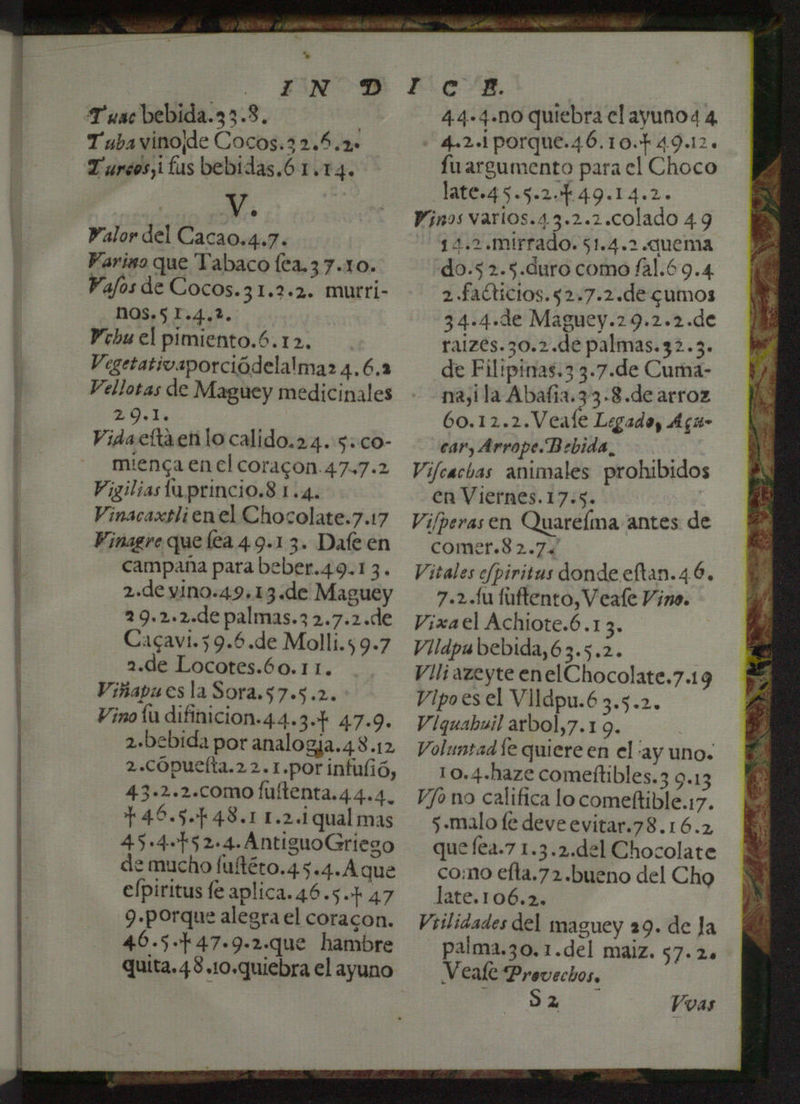 INDICE.
Tuac bebida.33.8.
Tuba vino de Cocos.32.6.2.
Turcos,i ſus bebidas.61.14.
V.
Valor del Cacao.4.7.
Varino que Tabaco ſea.37.10.
Vaſos de Cocos.31.2.2. murri-
nos.51.4.2.
Vchu el pimiento.6.12.
Vegetativa porciõ del alma 24.6.2
Vellotas de Maguey medicinales
29.1.
Vida eſtà en lo calido.24.5.co-
miença en el coraçon.47.7.2
Vigilias ſu princio.81.4.
Vinacaxtli en el Chocolate.7.17
Vinagre que ſea 49.13. Daſe en
campaña para beber.49.13.
2.de vino.49.13.de Maguey
29.2.2.de palmas.32.7.2.de
Caçavi.59.6.de Molli.59.7
2.de Locotes.60.11.
Viñapu es la Sora.57.5.2.
Vino ſu difinicion.44.3.† 47.9.
2.bebida por analogia.48.12
2.cõpueſta.22.1.por infuſiõ,
43.2.2.como ſuſtenta.44.4.
† 46.5.† 48.11.2.i qual mas
45.4.†52.4.Antiguo Griego
de mucho ſuſtẽto.45.4.A que
eſpiritus ſe aplica.46.5.† 47
9.porque alegra el coraçon.
46.5.† 47.9.2.que hambre
quita.48.10.quiebra el ayuno
44.4.no quiebra el ayuno 44
4.2.i porque.46.10.† 49.12.
ſu argumento para el Choco
late.45.5.2.† 49.14.2.
Vinos varios.43.2.2.colado 49
14.2.mirrado.51.4.2.quema
do.52.5.duro como ſal.69.4
2.facticios.52.7.2.de çumos
34.4.de Maguey.29.2.2.de
raizes.30.2.de palmas.32.3.
de Filipinas.33.7.de Cuma-
na,i la Abaſia.33.8.de arroz
60.12.2.Veaſe Legado, Açu-
car, Arrope.Bebida.
Viſcachas animales prohibidos
en Viernes.17.5.
Viſperas en Quareſma antes de
comer.82.7.
Vitales eſpiritus donde eſtan.46.
7.2.ſu ſuſtento, Veaſe Vino.
Vixa el Achiote.6.13.
Vlldpu bebida,63.5.2.
Vlli azeyte en el Chocolate.7.19
Vlpo es el Vlldpu.63.5.2.
Vlquahuil arbol,7.19.
Voluntad ſe quiere en el ayuno.
10.4.haze comeſtibles.39.13
Vſo no califica lo comeſtible.17.
5.malo ſe deve evitar.78.16.2
que ſea.71.3.2.del Chocolate
como eſta.72.bueno del Cho
late.106.2.
Vtilidades del maguey 29. de la
palma.30.1.del maiz.57.2.
Veaſe Provechos.
S2
Vvas